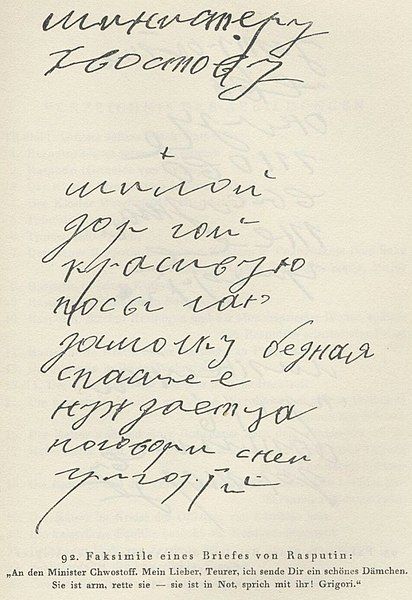 министеру
хвостову
+
милой
дорогой
красивую
посылаю
дамочку бедная
спаси ее
нуждаетца
поговори снеи
григорiй
92. Faksimile eines Briefes von Rasputin:
„An den Minister Chwostoff. Mein Lieber, Teurer, ich sende Dir ein schönes Dämchen.
Sie ist arm, rette sie — sie ist in Not, sprich mit ihr! Grigori.“